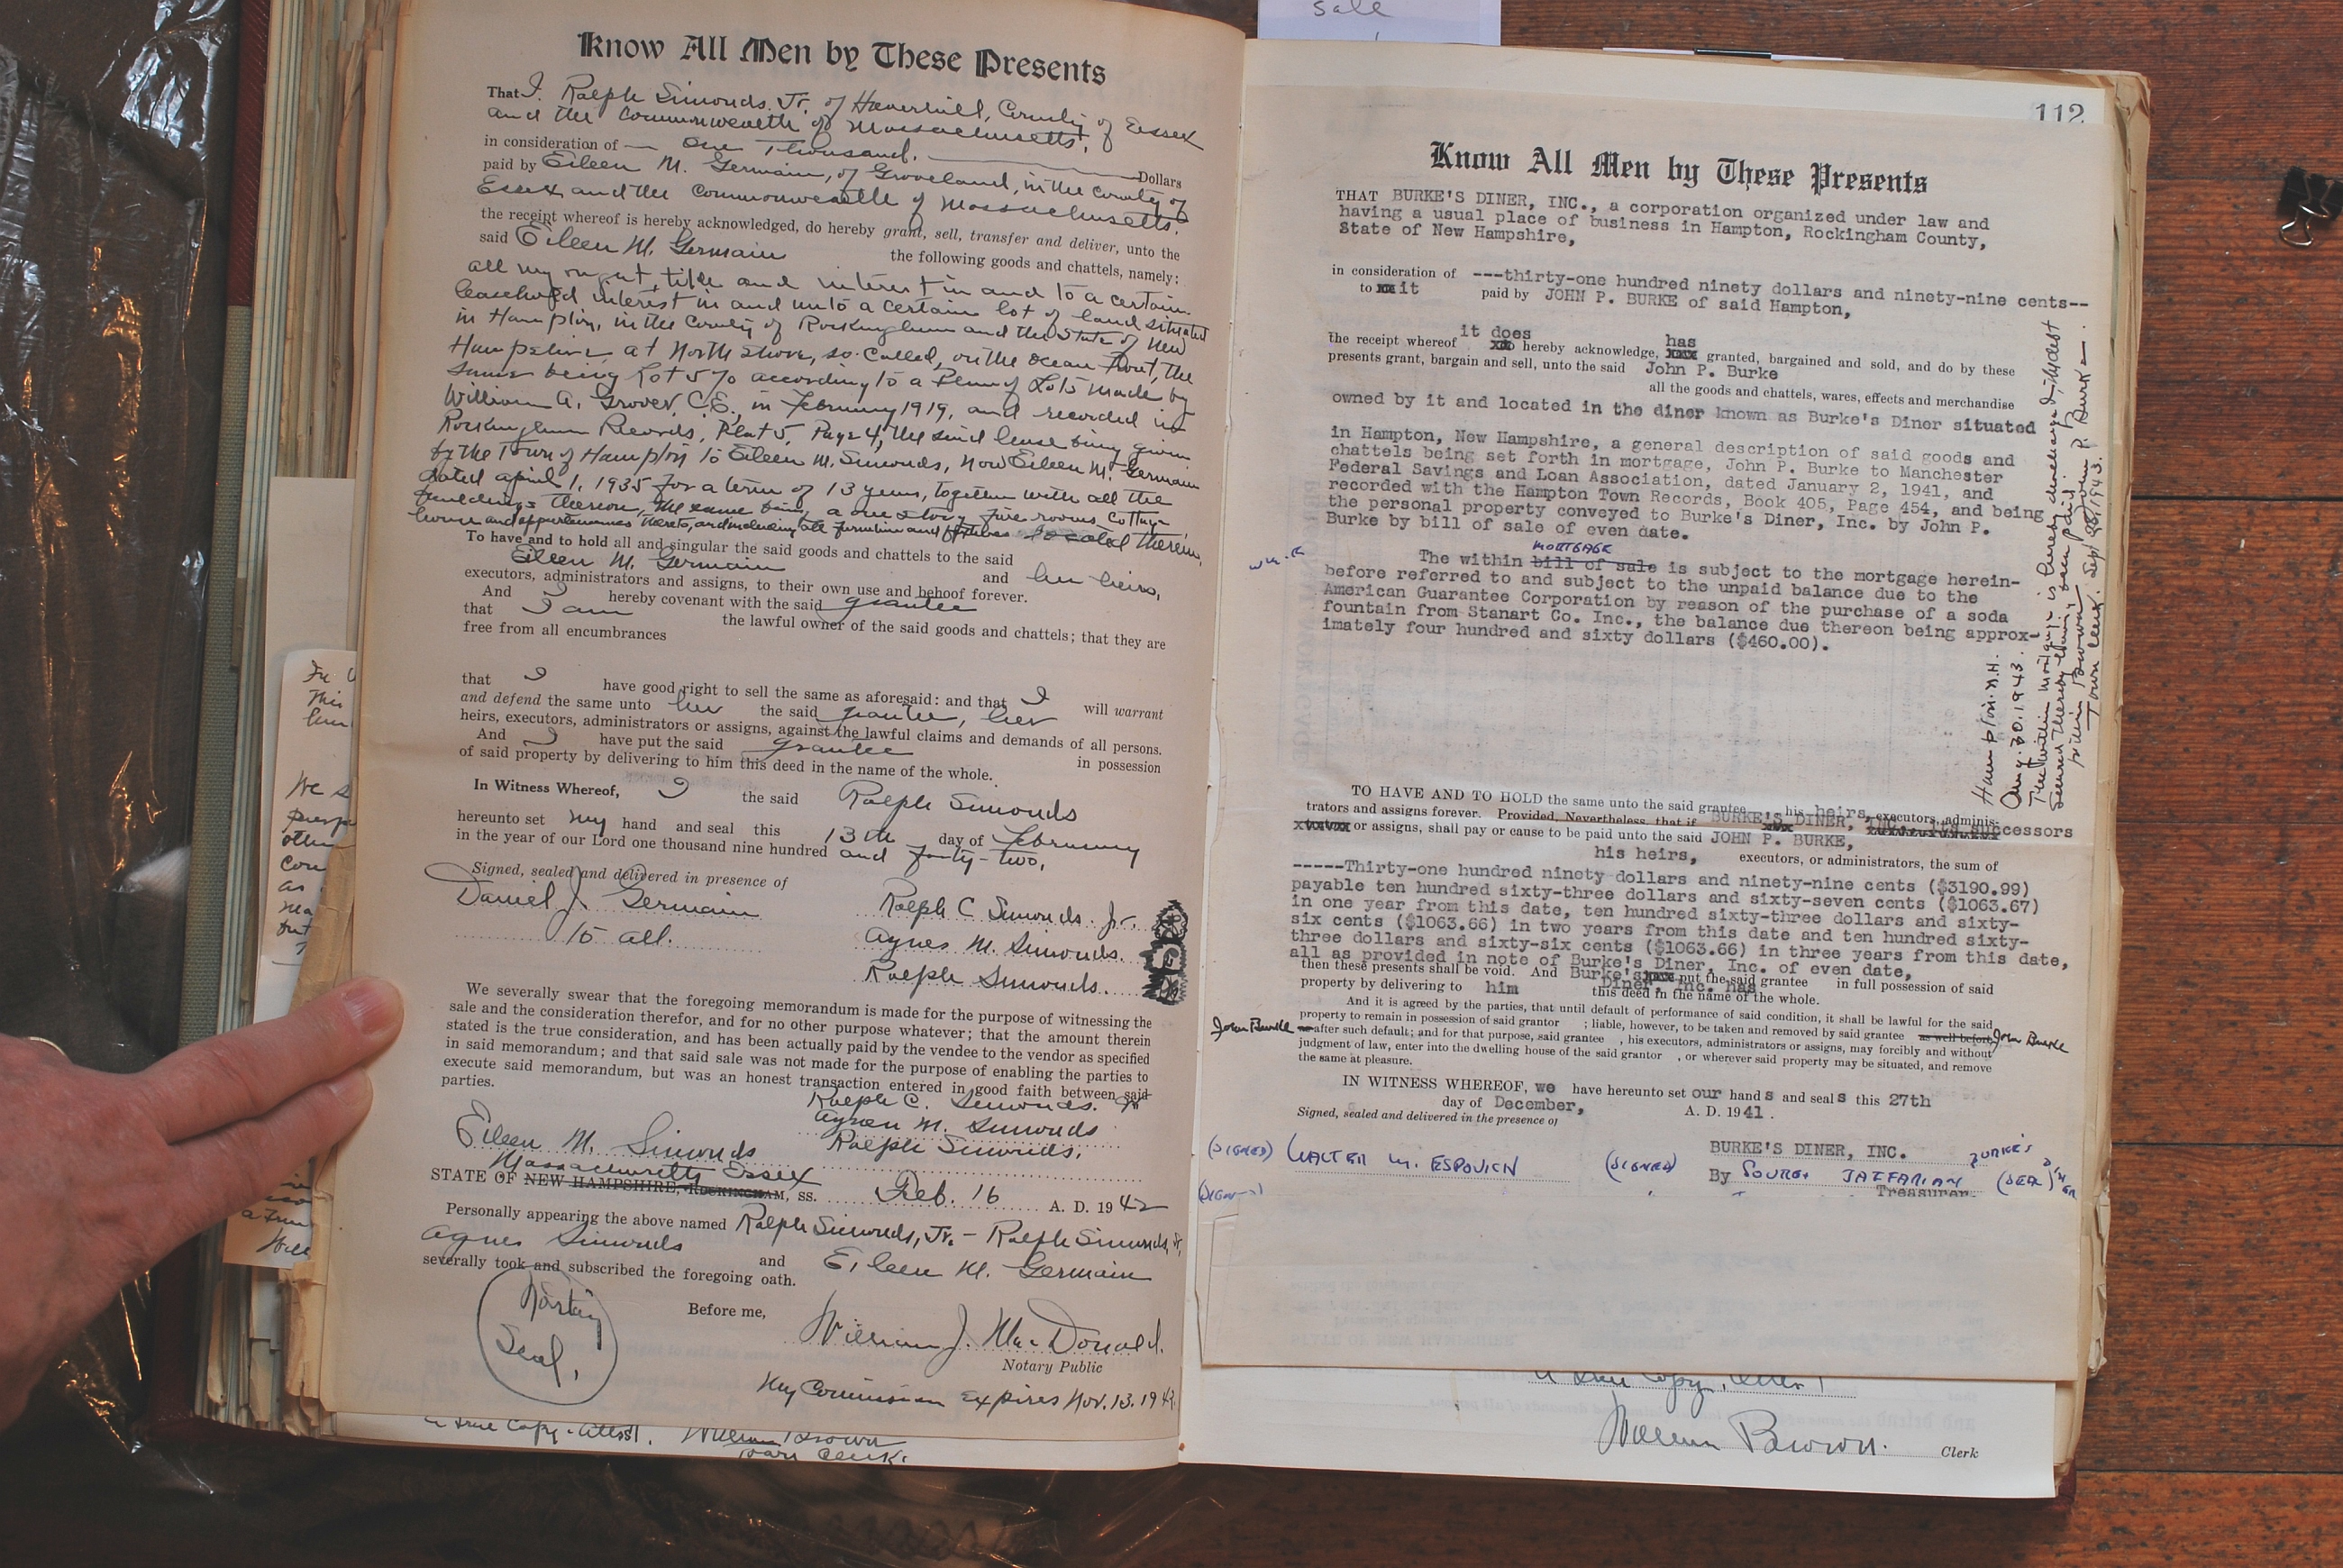 sale
Know All Men by These Presents
That I, Ralph Simonds, Jr. of Haverhill, County of Essex
and the Commonwealth of Massachusetts,
in consideration of — One Thousand. — Dollars
paid by Eileen M. Germain, of Groveland, in the County of
Essex and the Commonwealth of Massachusetts.
the receipt whereof is hereby acknowledged, do hereby grant, sell, transfer and deliver, unto the
said Eileen M. Germain the following goods and chattels, namely:
all my right, title and interest in and to a certain
leasehold interest in and unto a certain lot of land situated
in Hampton, in the County of Rockingham and the State of New
Hampshire, at North Shore, so-called, on the Ocean Front, the
same being Lot 570 according to a Plan of Lots made by
William A. Grover, C.E., in February 1919, and recorded in
Rockingham Records, Plat 5, Page 4, the said lease being given
by the Town of Hampton to Eileen M. Simonds, now Eileen M. Germain
dated April 1, 1935 for a term of 13 years, together with all the
buildings thereon, the same being a one story five rooms cottage
house and appurtenances thereto, and including all furniture and fixtures located therein.
To have and to hold all and singular the said goods and chattels to the said
Eileen M. Germain and her heirs,
executors, administrators and assigns, to their own use and behoof forever.
And I hereby covenant with the said grantee
that I am the lawful owner of the said goods and chattels; that they are
free from all encumbrances
that I have good right to sell the same as aforesaid: and that I will warrant
and defend the same unto her the said grantee, her
heirs, executors, administrators or assigns, against the lawful claims and demands of all persons.
And I have put the said grantee in possession
of said property by delivering to him this deed in the name of the whole.
In Witness Whereof, I the said Ralph Simonds
hereunto set my hand and seal this 13th day of February
in the year of our Lord one thousand nine hundred and forty-two,
Signed, sealed and delivered in presence of
Daniel J. Germain Ralph C Simonds. Jr.
to all. Agnes M. Simonds.
Ralph Simonds.
We severally swear that the foregoing memorandum is made for the purpose of witnessing the
sale and the consideration therefor, and for no other purpose whatever; that the amount therein
stated is the true consideration, and has been actually paid by the vendee to the vendor as specified
in said memorandum; and that said sale was not made for the purpose of enabling the parties to
execute said memorandum, but was an honest transaction entered in good faith between said
parties.
Ralph C. Simonds. Jr
Agnes M. Simonds
Eileen M. Simonds Ralph Simonds.
Massachusetts Essex
STATE OF NEW HAMPSHIRE, ROCKINGHAM, ss. Feb. 16 A. D. 1942
Personally appearing the above named Ralph Simonds, Jr. - Ralph Simonds, Sr,
Agnes Simonds and Eileen M. Germain
severally took and subscribed the foregoing oath.
Notary Seal. Before me,
William J. MacDonald.
Notary Public
My Commission expires Nov. 13. 194
A true Copy - attest. William Brown
Town Clerk.
112
Know All Men by These Presents
THAT BURKE'S DINER, INC., a corporation organized under law and
having a usual place of business in Hampton, Rockingham County,
State of New Hampshire,
in consideration of ---thirty-one hundred ninety dollars and ninety-nine cents--
to it paid by JOHN P. BURKE of said Hampton,
the receipt whereof it does hereby acknowledge, has granted, bargained and sold, and do by these
presents grant, bargain and sell, unto the said John P. Burke
all the goods and chattels, wares, effects and merchandise
owned by it and located in the diner known as Burke's Diner situated
in Hampton, New Hampshire, a general description of said goods and
chattels being set forth in mortgage, John P. Burke to Manchester
Federal Savings and Loan Association, dated January 2, 1941, and
recorded with the Hampton Town Records, Book 405, Page 454, and being
the personal property conveyed to Burke's Diner, Inc. by John P.
Burke by bill of sale of even date.
MORTGAGE
The within bill of sale is subject to the mortgage herein-
before referred to and subject to the unpaid balance due to the
American Guarantee Corporation by reason of the purchase of a soda
fountain from Stanart Co. Inc., the balance due thereon being approx-
imately four hundred and sixty dollars ($460.00).
Hampton. N.H.
Aug. 30. 1943.
The within mortgage is hereby discharged, the debt
secured thereby having been paid. John P. Burke
William Brown Town Clerk. Sept 28/1943.
TO HAVE AND TO HOLD the same unto the said grantee his heirs, executors, adminis-
trators and assigns forever. Provided, Nevertheless, that if BURKE'S DINER, INC. its successors
or assigns, shall pay or cause to be paid unto the said JOHN P. BURKE,
his heirs, executors, or administrators, the sum of
-----Thirty-one hundred ninety dollars and ninety-nine cents ($3190.99)
payable ten hundred sixty-three dollars and sixty-seven cents ($1063.67)
in one year from this date, ten hundred sixty-three dollars and sixty-
six cents ($1063.66) in two years from this date and ten hundred sixty-
three dollars and sixty-six cents ($1063.66) in three years from this date,
all as provided in note of Burke's Diner, Inc. of even date,
then these presents shall be void. And Burke's Diner, Inc. has put the said grantee in full possession of said
property by delivering to him this deed in the name of the whole.
And it is agreed by the parties, that until default of performance of said condition, it shall be lawful for the said
property to remain in possession of said grantor ; liable, however, to be taken and removed by said grantee as well before, John Burke
John Burke after such default; and for that purpose, said grantee , his executors, administrators or assigns, may forcibly and without
judgment of law, enter into the dwelling house of the said grantor , or wherever said property may be situated, and remove
the same at pleasure.
IN WITNESS WHEREOF, we have hereunto set our hands and seals this 27th
day of December, A. D. 1941.
Signed, sealed and delivered in the presence of
BURKE'S DINER, INC.
(SIGNED) WALTER M. ESPOVICH (SIGNED) By SOUREN JAFFARIAN BURKE'S DINER (SEAL)
(SIGNED) Treasurer.
A true Copy, attest
William Brown. Clerk